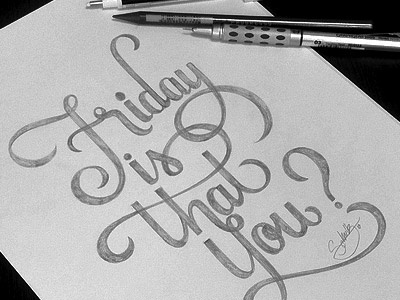 Friday
is
that
you?